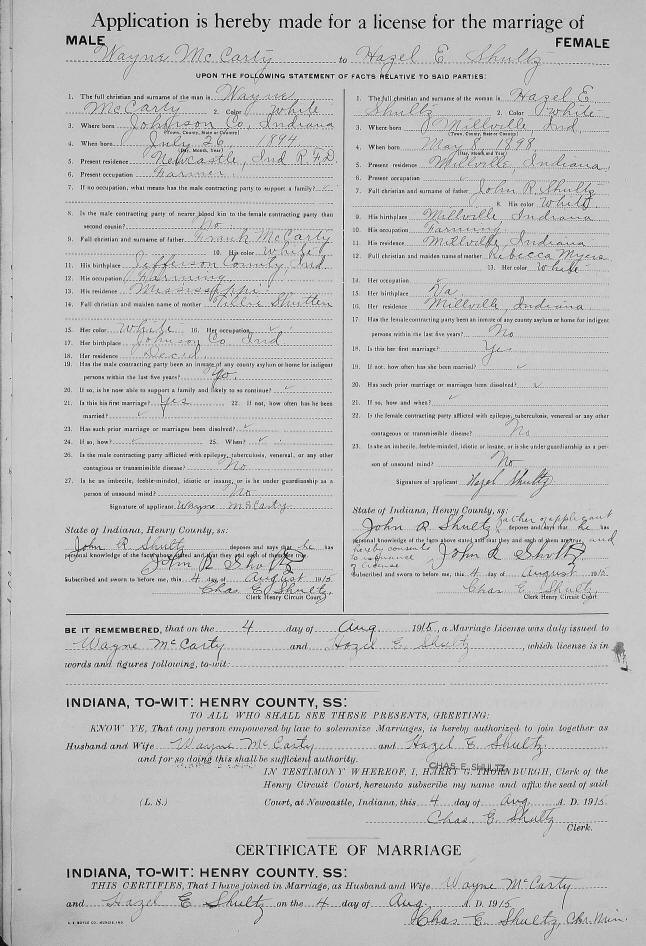 Application is hereby made for a license for the marriage of
MALE FEMALE
Wayne McCarty to Hazel E. Shultz
UPON THE FOLLOWING STATEMENT OF FACTS RELATIVE TO SAID PARTIES:
1. The full christian and surname of the man is Wayne
McCarty 2. Color White
3. Where born Johnson Co, Indiana
(Town, County, State or Country)
4. When born July 26, 1894
(Day, Month, Year)
5. Present residence Newcastle, Ind R.F.D.
6. Present occupation Farmer
7. If no occupation, what means has the male contracting party to support a family? ✓
8. Is the male contracting party of nearer blood kin to the female contracting party than
second cousin? No
9. Full christian and surname of father Frank McCarty
10. His color White
11. His birthplace Jefferson County, Ind
12. His occupation Farming
13. His residence Mississippi
14. Full christian and maiden name of mother
15. Her color White 16. Her occupation ✓
17. Her birthplace Johnson Co. Ind
18. Her residence Dec'd
19. Has the male contracting party been an inmate of any county asylum or home for indigent
persons within the last five years?
20. If so, is he now able to support a family and likely to so continue? ✓
21. Is this his first marriage? Yes 22. If not, how often has he been
married? ✓
23. Has such prior marriage or marriages been dissolved? ✓
24. If so, how? ✓ 25. When? ✓
26. Is the male contracting party afflicted with epilepsy, tuberculosis, venereal, or any other
contagious or transmissible disease? No
27. Is he an imbecile, feeble-minded, idiotic or insane, or is he under guardianship as a
person of unsound mind? No
Signature of applicant Wayne McCarty
State of Indiana, Henry County, ss:
John R. Shultz deposes and says that he has
personal knowledge of the facts above stated and that they and each of them are true.
John R Shultz
Subscribed and sworn to before me, this 4 day of August 1915
Chas E. Shultz
Clerk Henry Circuit Court
1. The full christian and surname of the woman is Hazel E
Shultz 2. Color White
3. Where born Millville, Ind
(Town, County, State or Country)
4. When born May 8, 1898
(Day, Month and Year)
5. Present residence Millville, Indiana
6. Present occupation
7. Full christian and surname of father John R. Shultz
8. His color White
9. His birthplace Millville, Indiana
10. His occupation Farming
11. His residence Millville, Indiana
12. Full christian and maiden name of mother Rebecca Myers
13. Her color White
14. Her occupation ✓
15. Her birthplace
16. Her residence Millville, Indiana
17. Has the female contracting party been an inmate of any county asylum or home for indigent
persons within the last five years? No
18. Is this her first marriage? Yes
19. If not, how often has she been married? ✓
20. Has such prior marriage or marriages been dissolved? ✓
21. If so, how and when? ✓
22. Is the female contracting party afflicted with epilepsy, tuberculosis, venereal or any other
contagious or transmissible disease? No
23. Is she an imbecile, feeble-minded, idiotic or insane, or is she under guardianship as a per-
son of unsound mind? No
Signature of applicant Hazel Shultz
State of Indiana, Henry County, ss:
John R. Shultz father of applicant deposes and says that he has
personal knowledge of the facts above stated and that they and each of them are true, and
hereby consents
to issuance
of license
John R Shultz
Subscribed and sworn to before me, this 4 day of August 1915
Chas E. Shultz
Clerk Henry Circuit Court
BE IT REMEMBERED, that on the 4 day of Aug. 1915, a Marriage License was duly issued to
Wayne McCarty and Hazel E. Shultz, which license is in
words and figures following, to-wit:
INDIANA, TO-WIT: HENRY COUNTY, SS:
TO ALL WHO SHALL SEE THESE PRESENTS, GREETING:
KNOW YE, That any person empowered by law to solemnize Marriages, is hereby authorized to join together as
Husband and Wife Wayne McCarty and Hazel E. Shultz
and for so doing this shall be sufficient authority.
CHAS. E. SHULTZ
IN TESTIMONY WHEREOF, I, HARRY G. THORNBURGH, Clerk of the
Henry Circuit Court, hereunto subscribe my name and affix the seal of said
(L. S.) Court, at Newcastle, Indiana, this 4 day of Aug A. D. 1915.
Chas. E. Shultz
Clerk.
CERTIFICATE OF MARRIAGE
INDIANA, TO-WIT: HENRY COUNTY, SS:
THIS CERTIFIES, That I have joined in Marriage, as Husband and Wife Wayne McCarty
and Hazel E Shultz on the 4 day of Aug. A. D. 1915
Chas E. Shultz, Chr. Min.